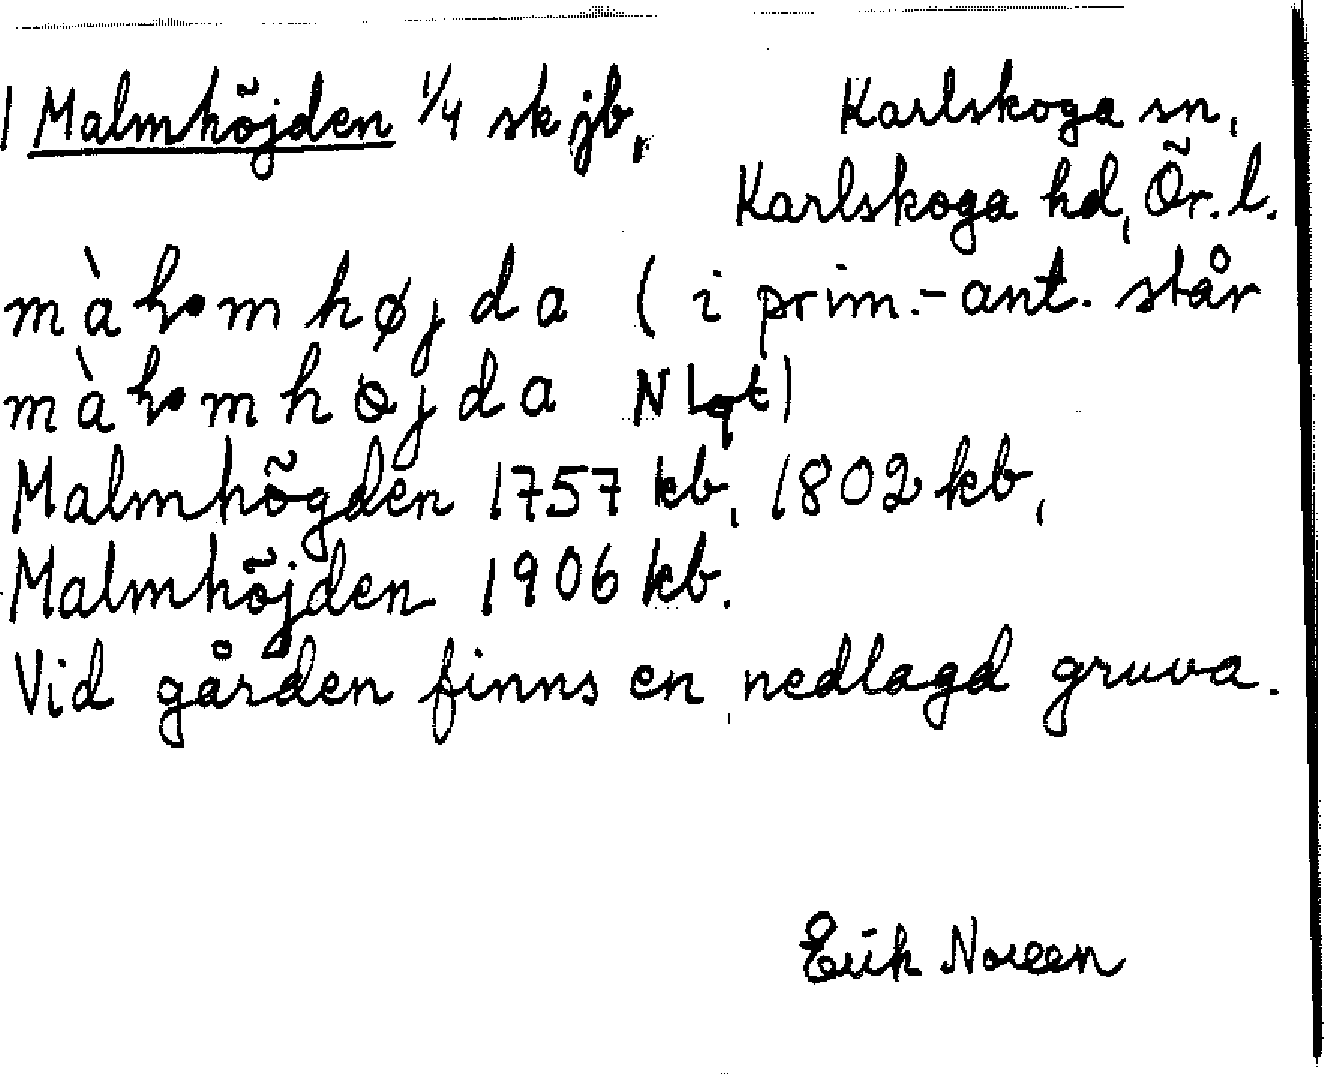 Malmhöjden 1/4 sk jb, Karlskoga sn,
Karlskoga hd, Ör. l.
(i prim.-ant. står
Malmhögden 1757 kb, 1802 kb,
Malmhöjden 1906 kb.
Vid gården finns en nedlagd gruva.
Erik Noreen